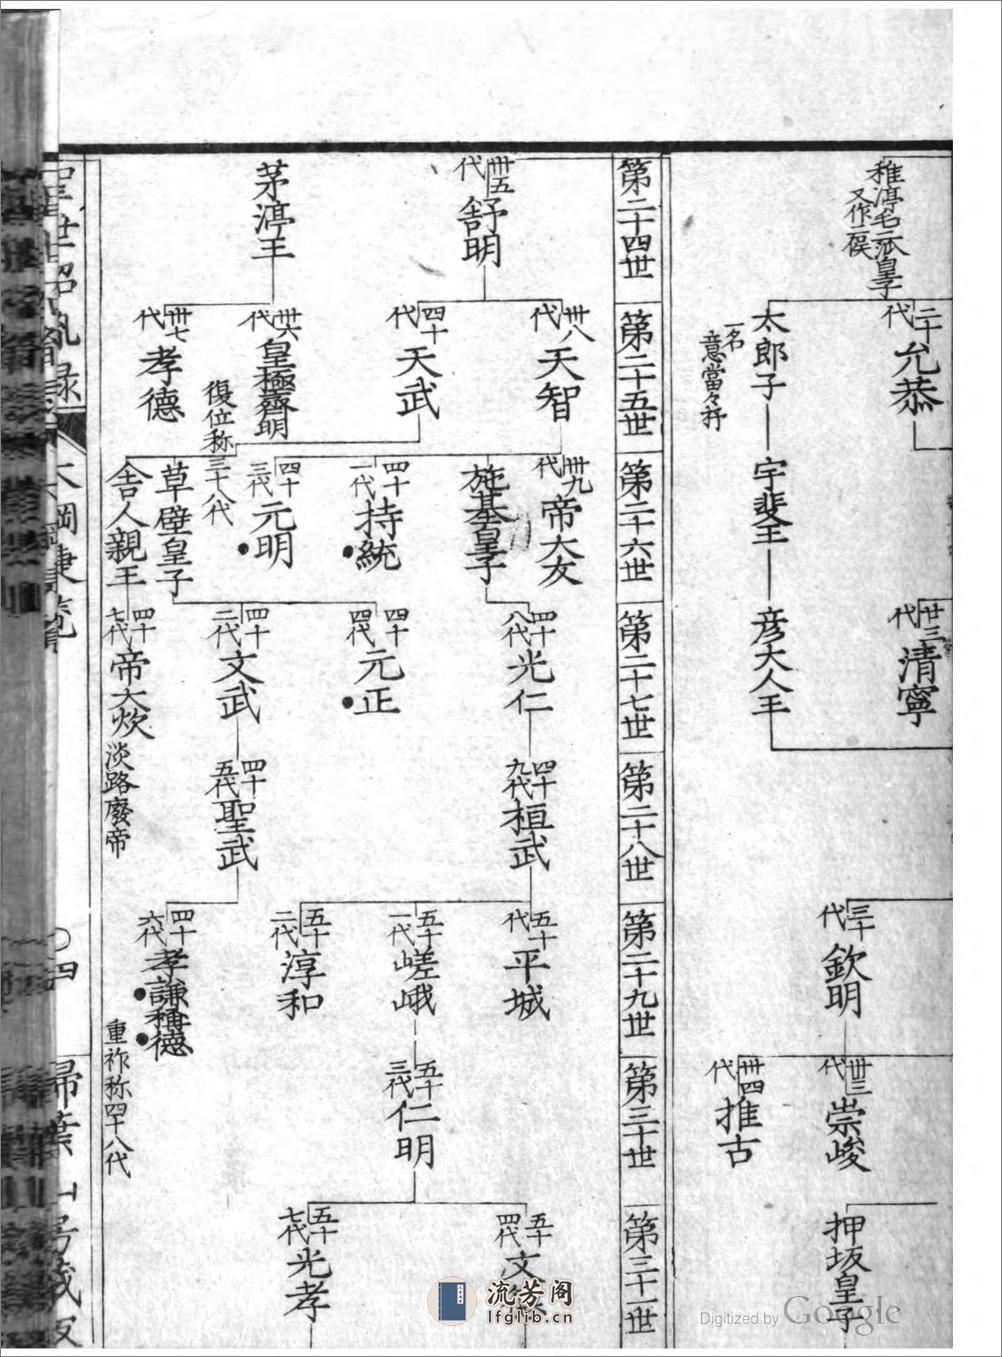 稚渟毛二派皇子
又作二俣
二十代 允恭
太郎子
一名意富々杼
宇斐王
彦大人王
廿三代 清寧
三十代 欽明
卅三代 崇峻
卅四代 推古
押坂皇子
第二十四世
第二十五世
第二十六世
第二十七世
第二十八世
第二十九世
第三十世
第三十一世
卅五代 舒明
茅渟王
卅八代 天智
四十代 天武
卅六代 皇極齊明
復位称三十八代
卅七代 孝德
卅九代 帝大友
施基皇子
四十一代 持統
四十三代 元明
草壁皇子
舎人親王
四十八代 光仁
四十四代 元正
四十二代 文武
四十七代 帝大炊
淡路廢帝
四十九代 桓武
四十五代 聖武
五十代 平城
五十一代 嵯峨
五十二代 淳和
四十六代 孝謙稱德
重祚称四十八代
五十三代 仁明
五十四代 文
五十七代 光孝
〇四
流芳阁
lfglib.cn
Digitized by Google